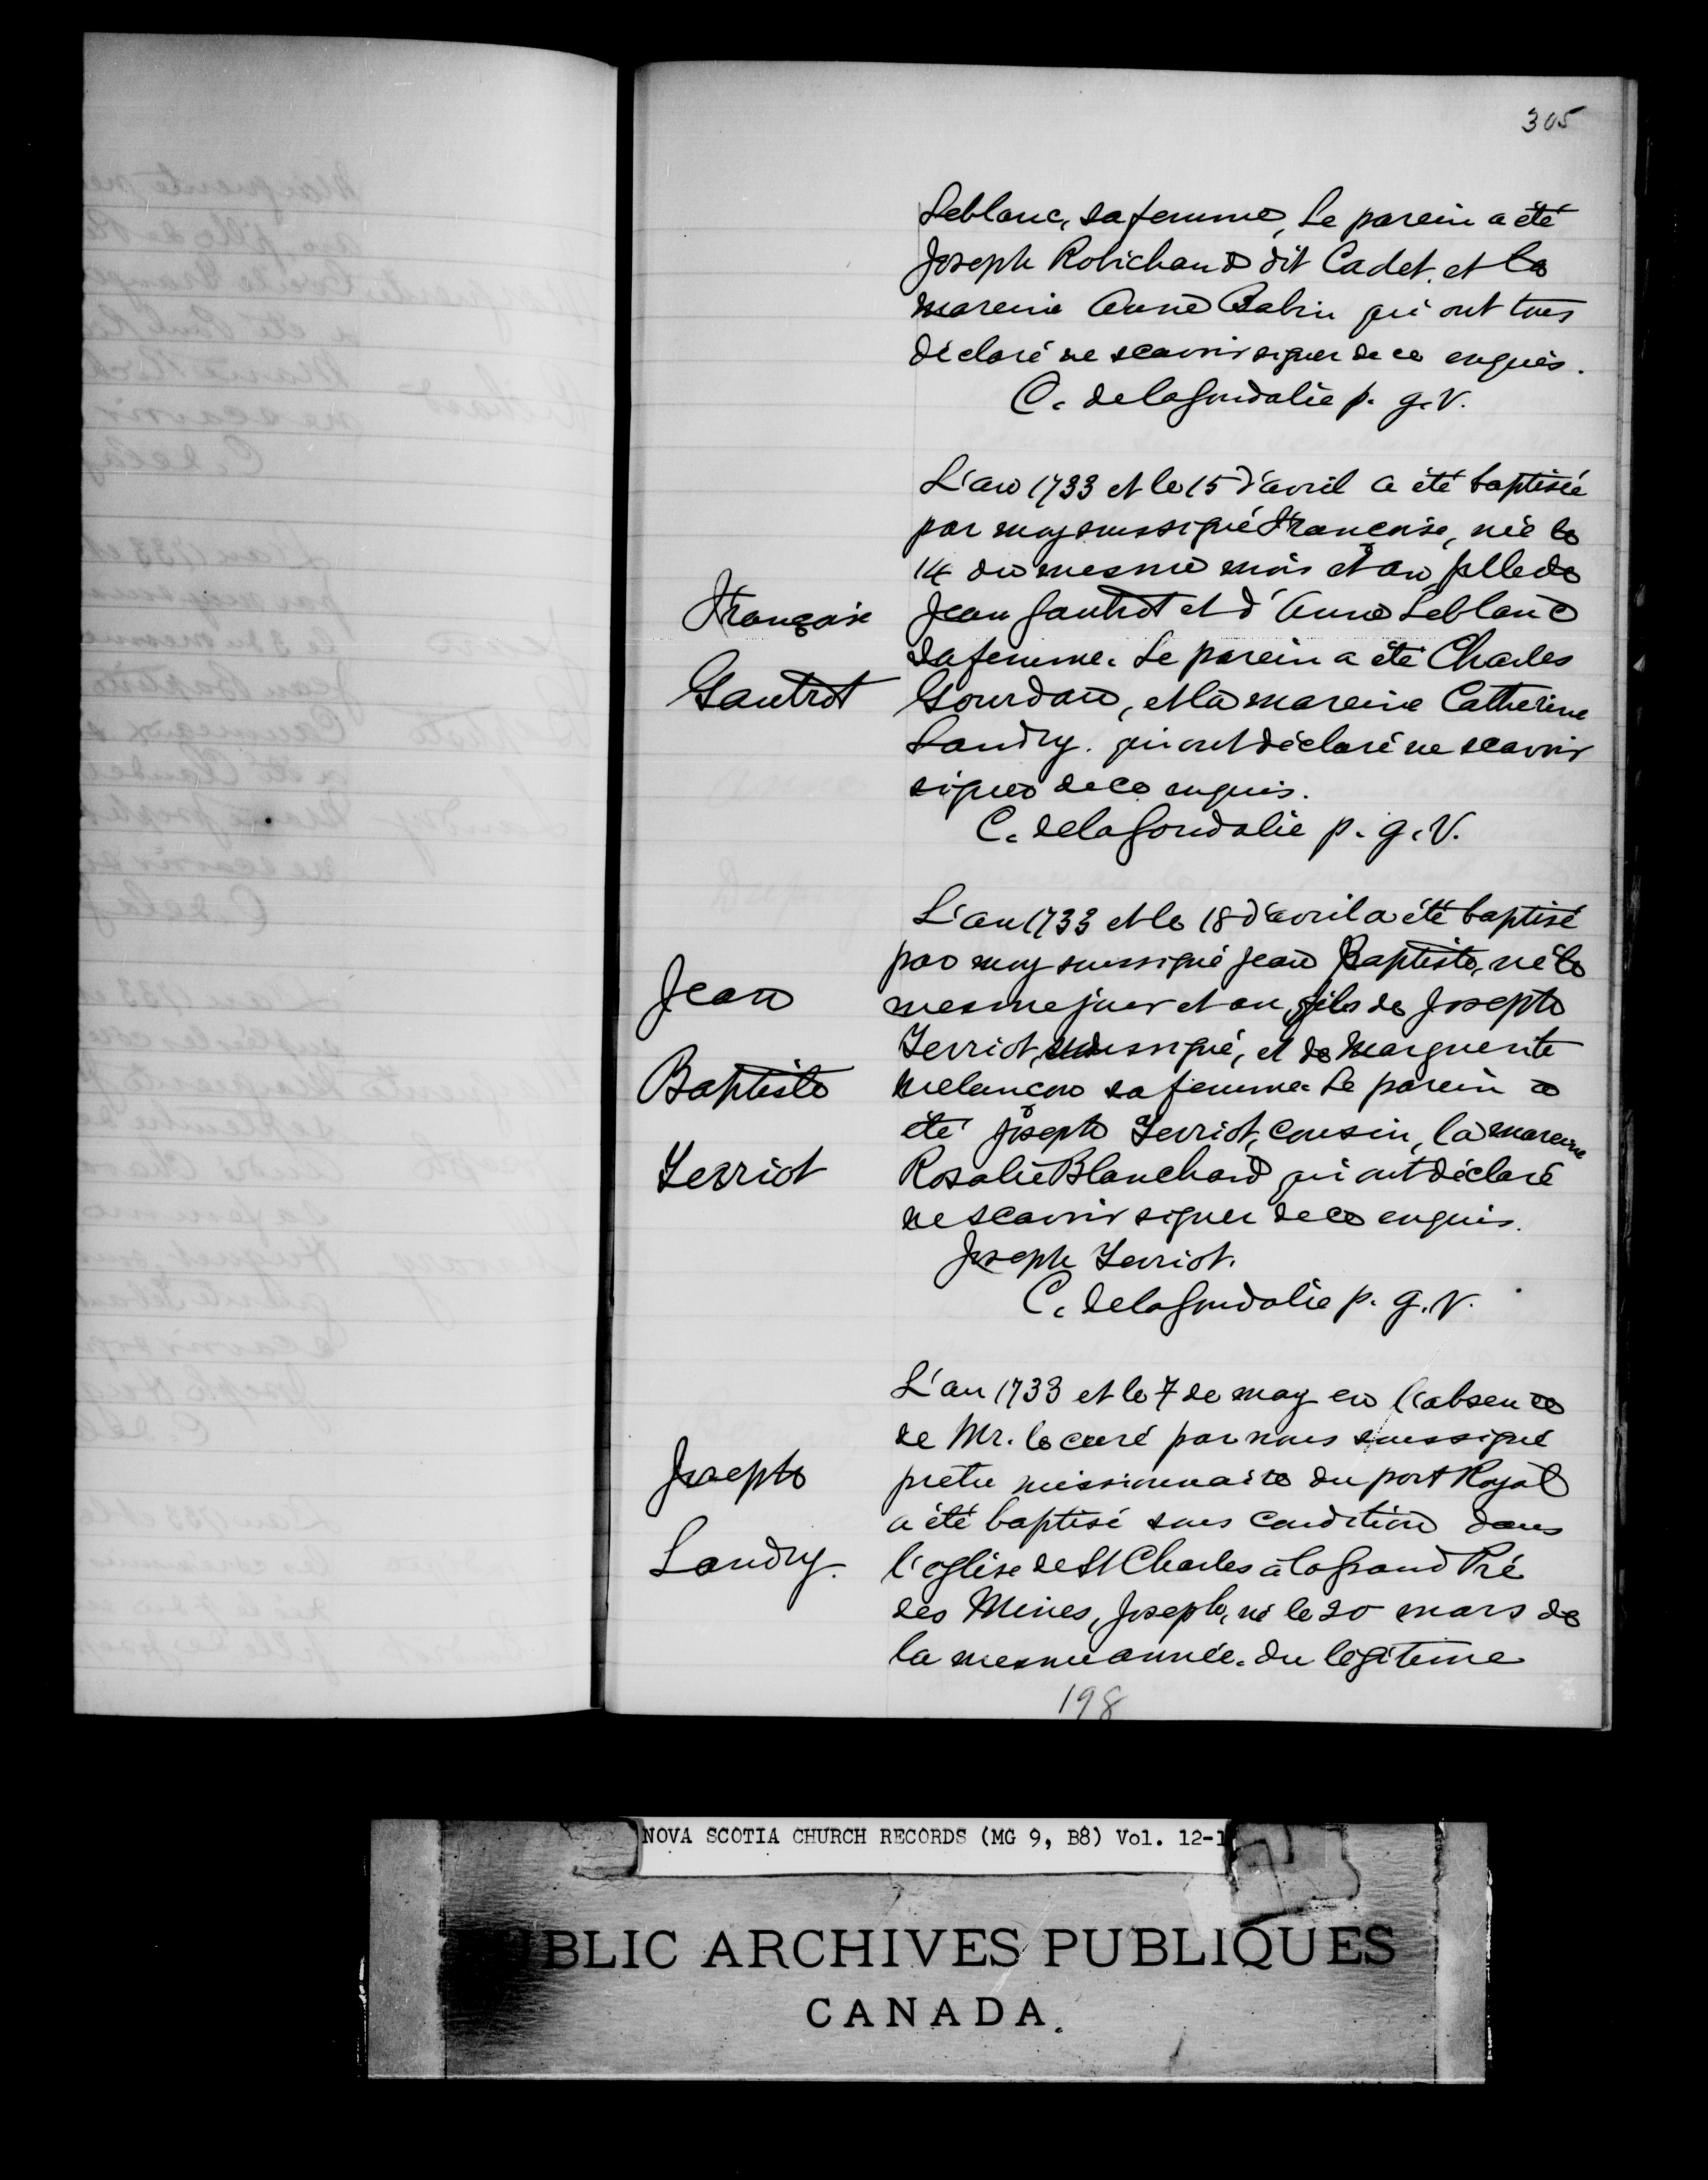 305
Leblanc, sa femme, Le parein a été
Joseph Robichaud dit Cadet, et la
mareine Anne Babin qui ont tous
déclaré ne scavoir signer de ce enquis.
C. de la Goudalie p. g. V.
L'an 1733 et le 15 d'avril a été baptisée
par moy soussigné Francoise, née le
14 du mesme mois et an, fille de
Françoise
Jean Gautrot et d'Anne Leblanc
sa femme. Le parein a été Charles
Gautrot
Gourdan, et la mareine Catherine
Landry. qui ont déclaré ne scavoir
signer de ce enquis.
C. de la Goudalie p. g. V.
L'an 1733 et le 18 d'avril a été baptisé
par moy soussigné Jean Baptiste, né le
Jean
mesme jour et an, fils de Joseph
Terriot, soussigné, et de Marguerite
Baptiste
Melancon sa femme. Le parein a
été Joseph Terriot, cousin, la mareine
Terriot
Rosalie Blanchard qui ont déclaré
ne scavoir signer de ce enquis.
Joseph Terriot.
C. de la Goudalie p. g. V.
L'an 1733 et le 7 de may en l'absence
de Mr. le curé par nous soussigné
Joseph
pretre missionnaire du port Royal
a été baptisé sous condition dans
Landry.
l'eglise de St Charles à la grand Pré
des Mines, Joseph, né le 20 mars de
la mesme année. du légitime
198
NOVA SCOTIA CHURCH RECORDS (MG 9, B8) Vol. 12-1
BLIC ARCHIVES PUBLIQUES
CANADA.